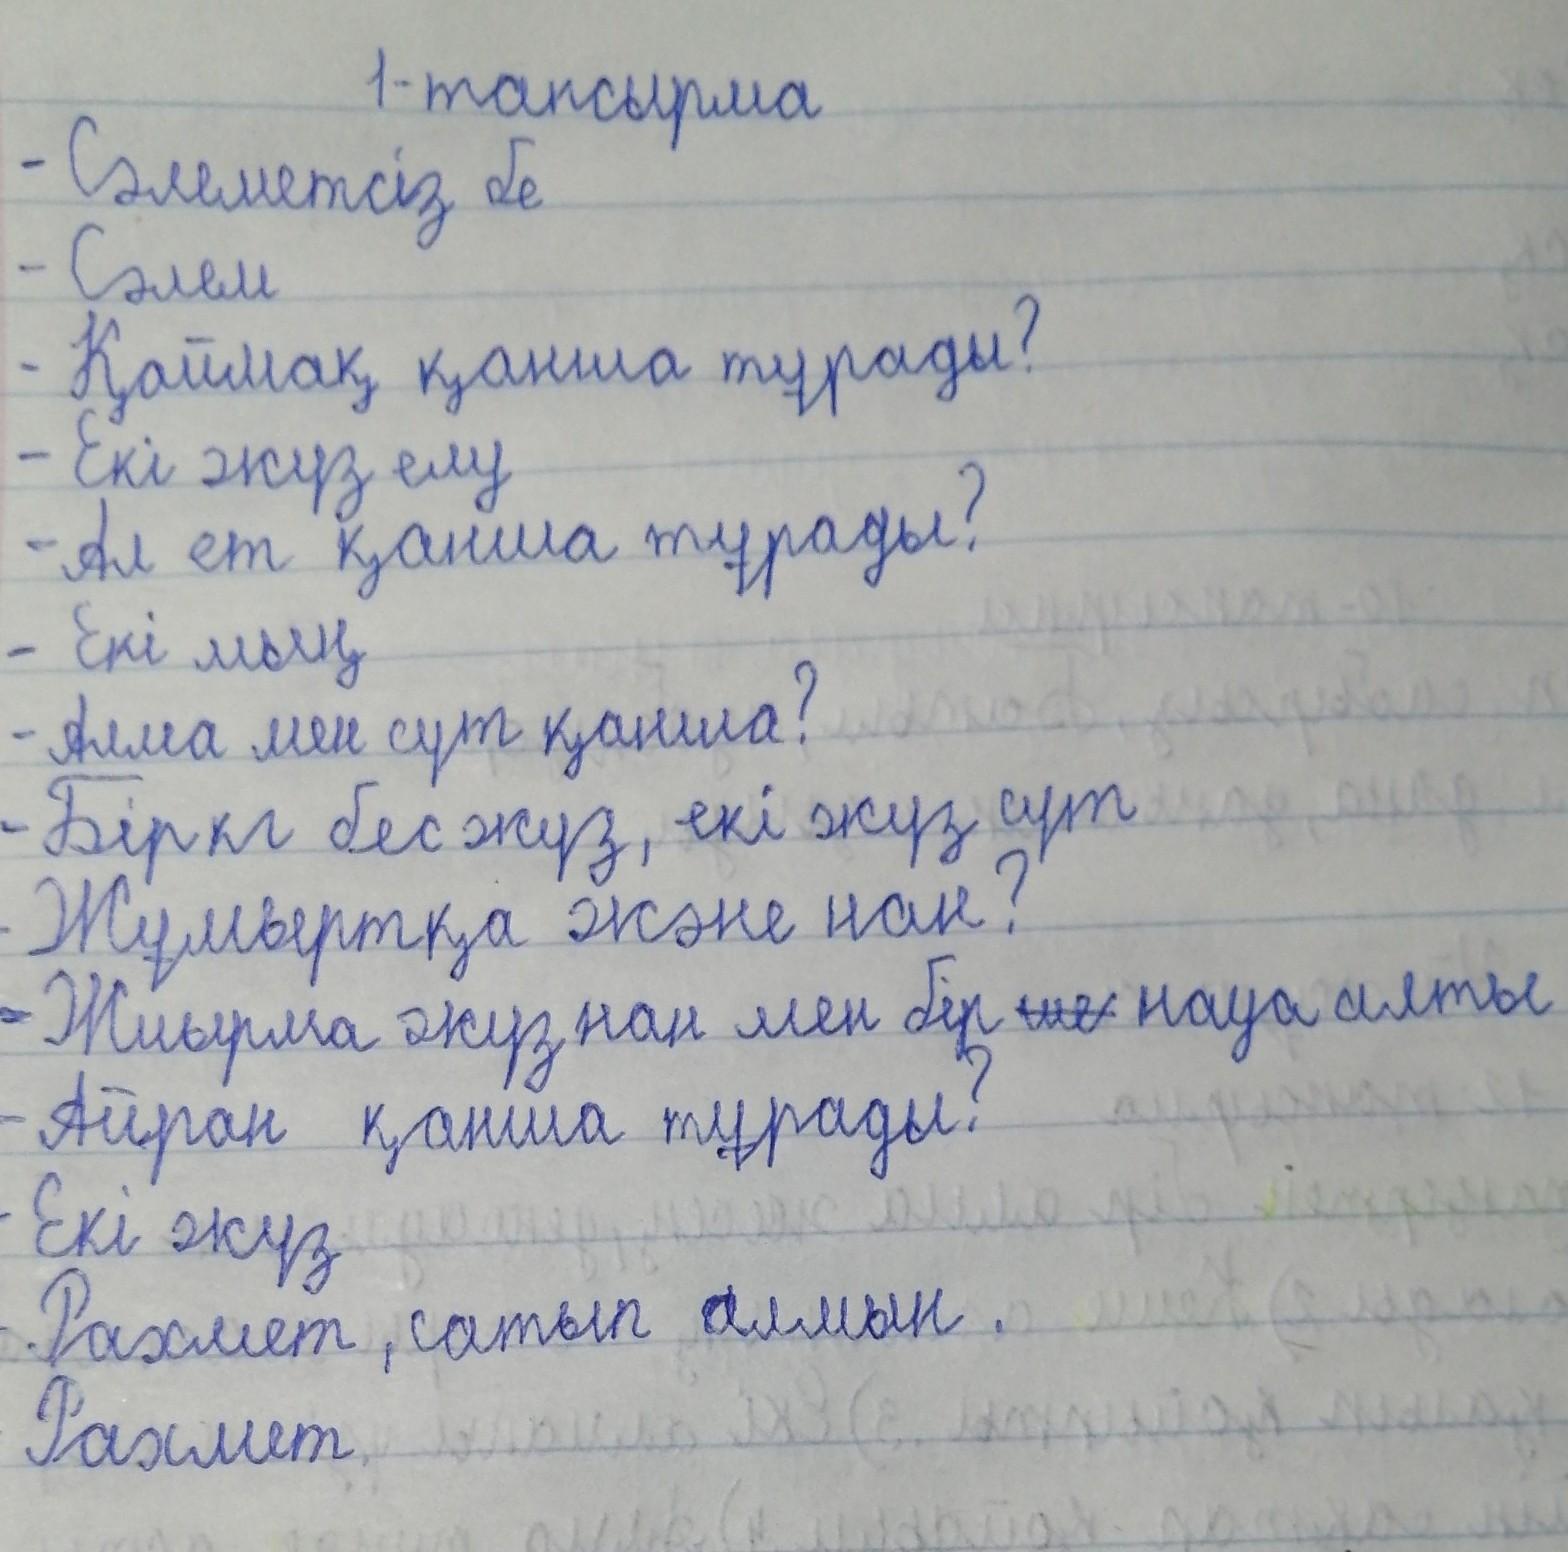 1-тапсырма
- Сәлеметсіз бе
- Сәлем
- Қаймақ қанша тұрады?
- Екі жүз елу
- Ал ет қанша тұрады?
- Екі мың
- Алма мен сүт қанша?
- Бір кг бес жүз, екі жүз сүт
- Жұмыртқа және нан?
- Жиырма жүз нан мен бір науа алты
- Айран қанша тұрады?
- Екі жүз
- Рахмет, сатып алмын.
- Рахмет